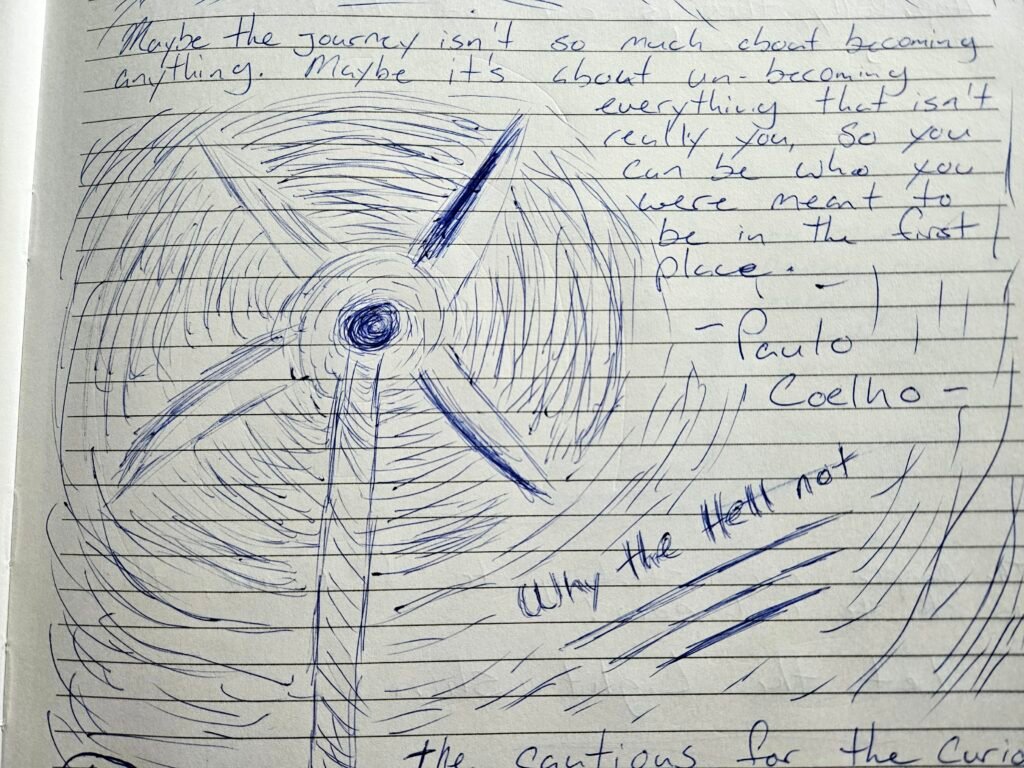 Maybe the journey isn't so much about becoming
anything. Maybe it's about un-becoming
everything that isn't
really you, so you
can be who you
were meant to
be in the first
place.
- Paulo
Coelho -
Why the Hell not
the cautious for the curio